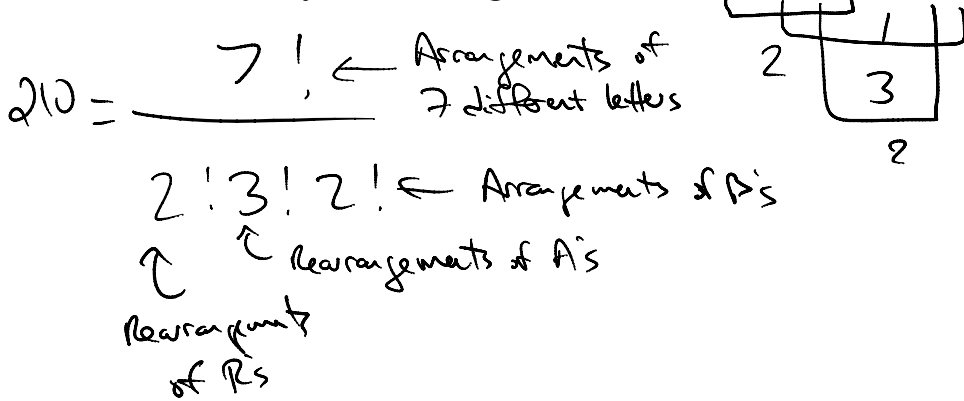 7! ← Arrangements of
7 different letters
210 =
2!3!2! ← Arrangements of B's
Rearrangements of A's
Rearrangements
of R's
1
2
3
2